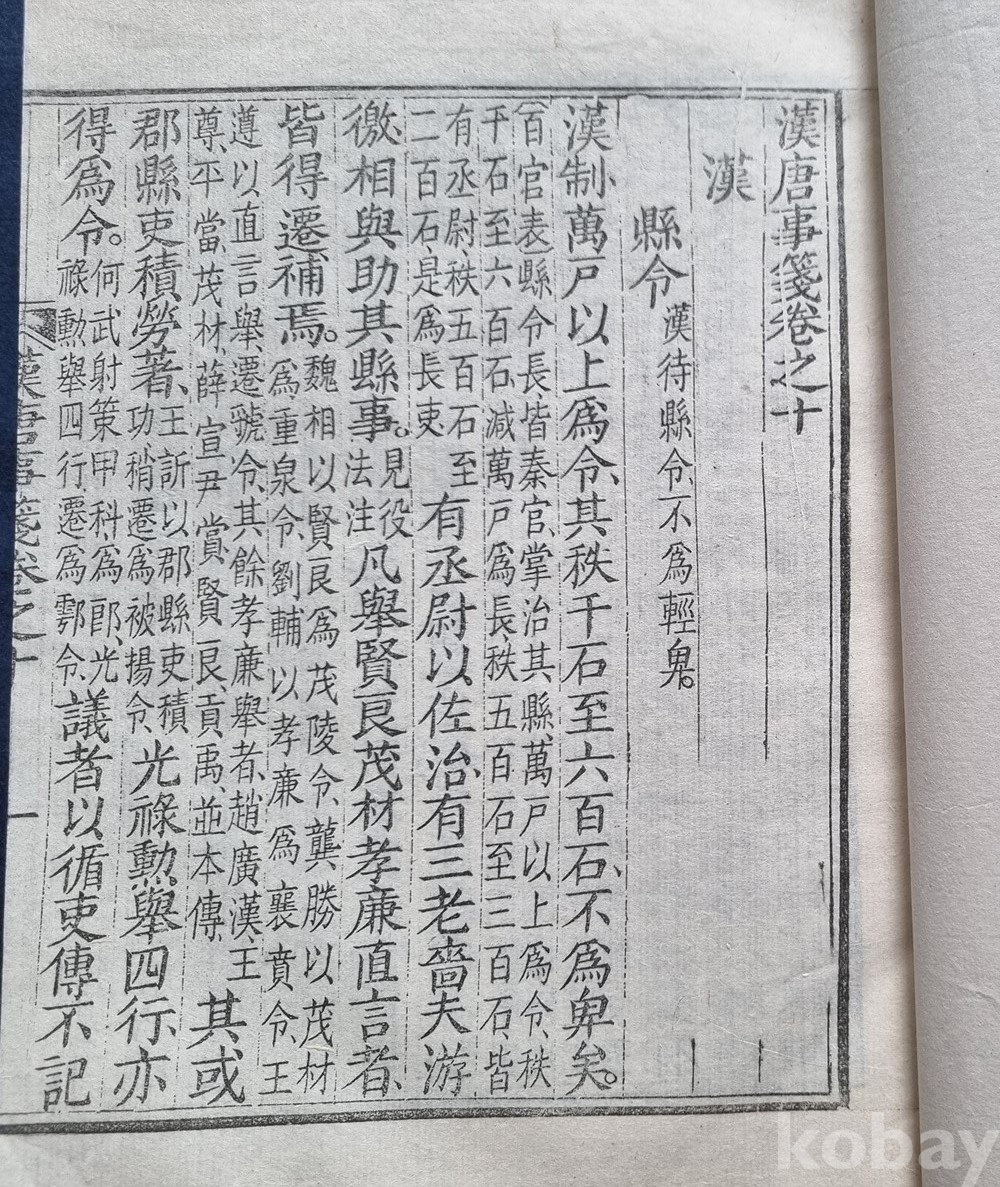 漢唐事箋卷之十
漢
縣令漢待縣令、不爲輕𤰞。
漢制、萬戸以上爲令、其秩千石至六百石、不爲𤰞矣。
（百官表）縣令長、皆秦官、掌治其縣、萬戸以上爲令、秩
千石至六百石、减萬戸爲長、秩五百石至三百石、皆
有丞尉、秩五百石至
二百石、是爲長吏
有丞尉以佐治、有三老嗇夫游
徼、相與助其縣事。
見役
法注
凡舉賢良茂材孝廉直言者、
皆得遷補焉。
魏相以賢良爲茂陵令、龔勝以茂材
爲重泉令、劉輔以孝廉爲襄賁令、王
遵以直言舉、遷虢令、其餘孝廉舉者、趙廣漢、王
尊、平當、茂材、薛宣、尹賞、賢良、貢禹、並本傳、
其或
郡縣吏積勞著、
王訢以郡縣吏積
功、稍遷爲被揚令、
光祿勲、舉四行、亦
得爲令。
何武射策甲科、爲郎、光
祿勲舉四行、遷爲鄠令、
議者以循吏傳不記
漢唐事箋卷之十
一
kobay